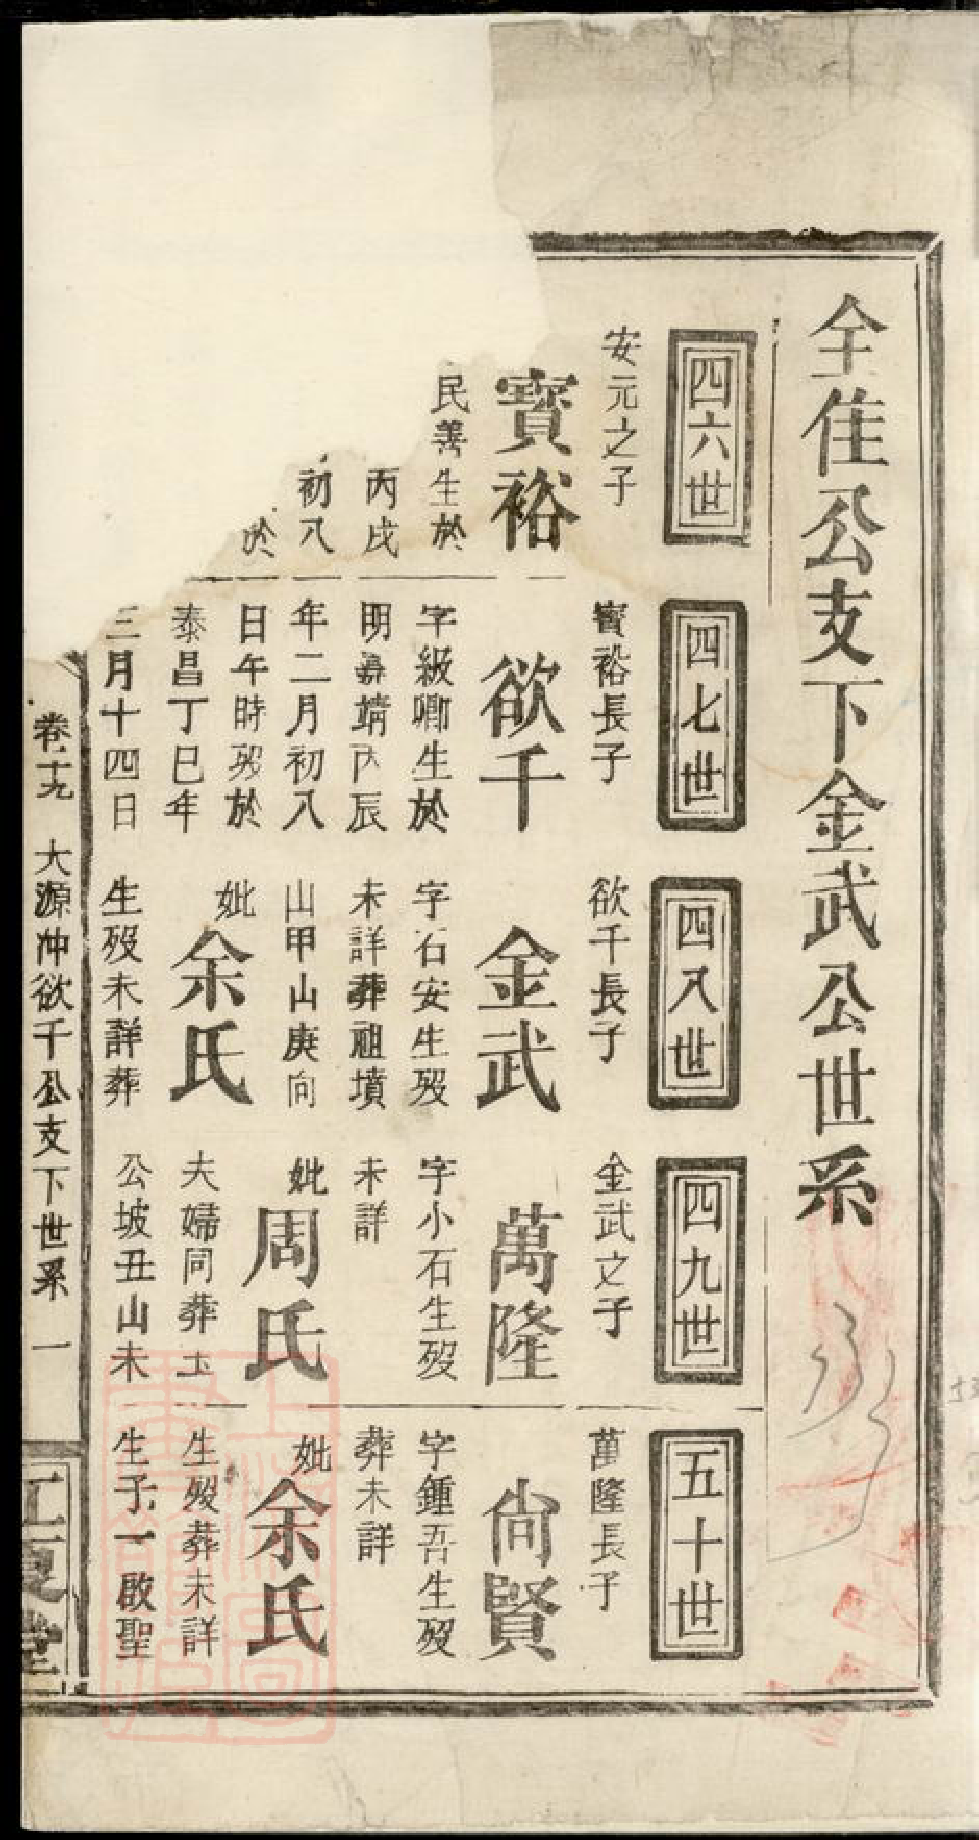 全隹公支下金武公世系
四六世
安元之子
寳裕
民善生於
丙戌
初八
於
四七世
寳裕長子
欲千
字級卿生於
明嘉靖丙辰
年二月初八
日午時歿於
泰昌丁巳年
三月十四日
四八世
欲千長子
金武
字石安生歿
未詳葬祖墳
山甲山庚向
妣余氏
生歿未詳葬
四九世
金武之子
萬隆
字小石生歿
未詳
妣周氏
夫婦同葬土
公坡丑山未
五十世
萬隆長子
尙賢
字鍾吾生歿
葬未詳
妣余氏
生歿葬未詳
生子一啟聖
卷十九 大源冲欲千公支下世系 一
江夏堂